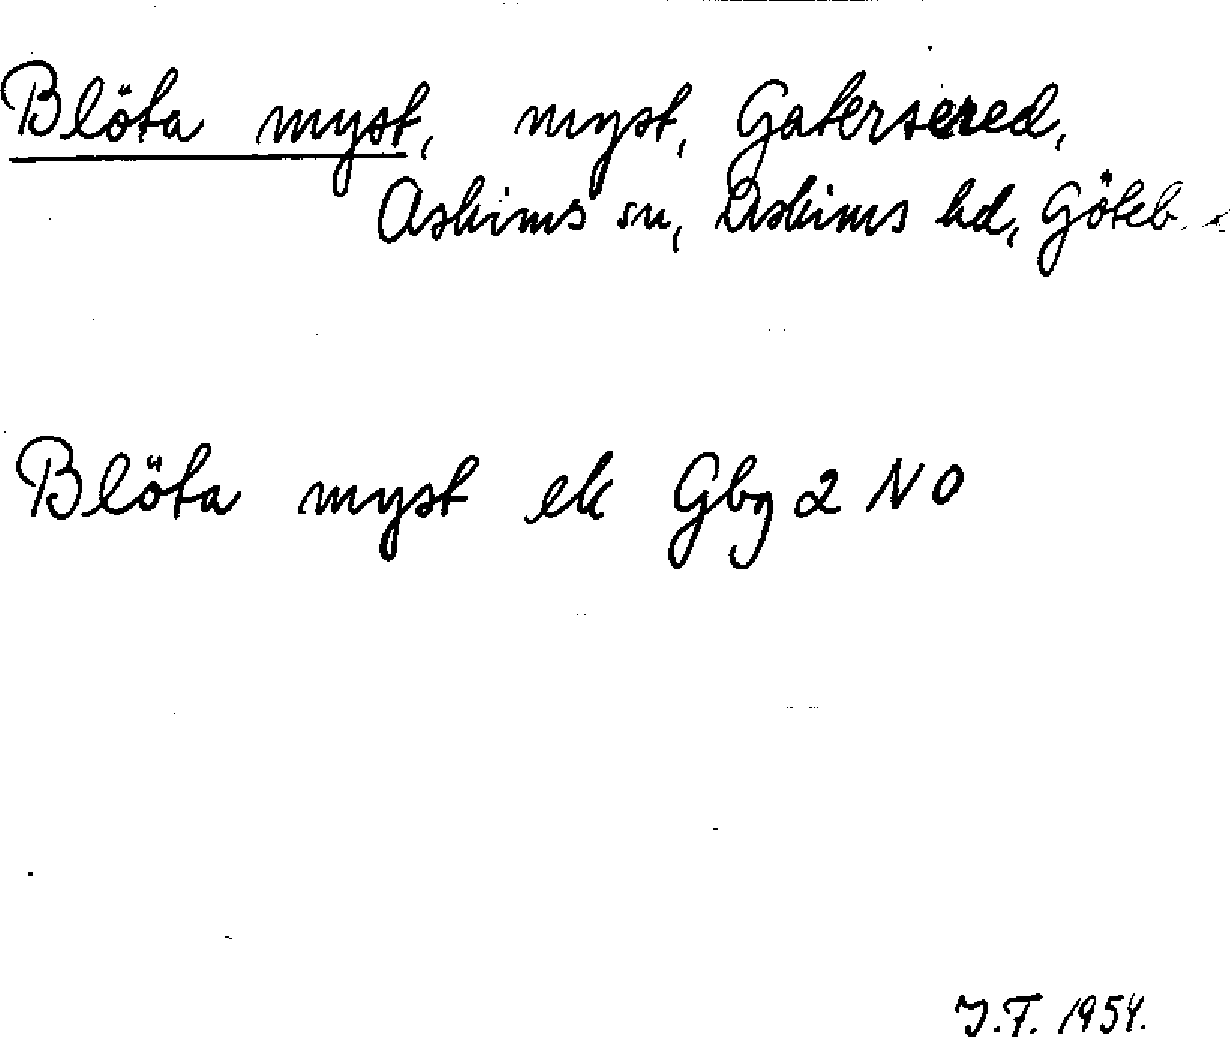 Blöta myst, myst, Gatersered,
Askims sn, Askims hd, Göteb.
Blöta myst ek Gbg 2 NO
J.F. 1954.